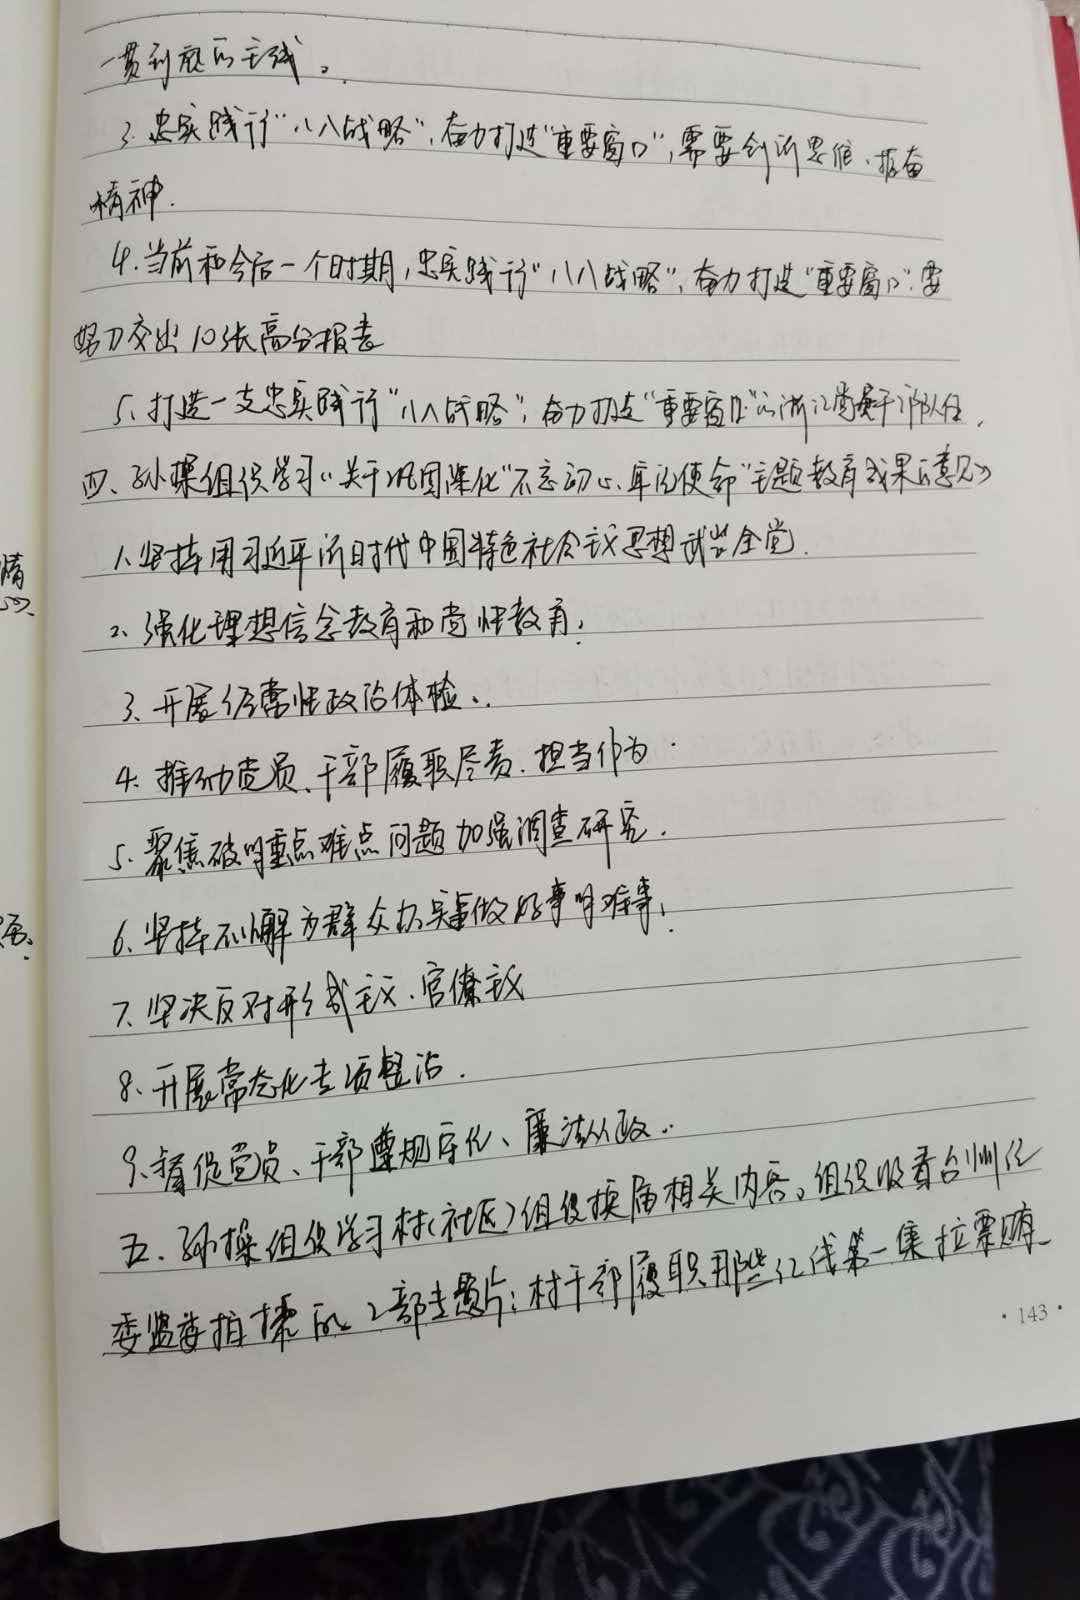 一贯到底的主线。
3、忠实践行“八八战略”,奋力打造“重要窗口”,需要创新思维、振奋
精神.
4.当前和今后一个时期,忠实践行“八八战略”,奋力打造“重要窗口”.要
努力交出10张高分报表
5、打造一支忠实践行“八八战略”,奋力打造“重要窗口”的浙江党员干部队伍.
四、孙操组织学习《关于巩固深化“不忘初心、牢记使命”主题教育成果的意见》
1、坚持用习近平新时代中国特色社会主义思想武装全党.
2、强化理想信念教育和党性教育;
3、开展经常性政治体检..
4、推动党员、干部履职尽责.担当作为.
5、聚焦破解重点难点问题加强调查研究.
6、坚持不懈为群众办实事做好事解难事;
7、坚决反对形式主义、官僚主义
8、开展常态化专项整治.
9、督促党员、干部遵规守纪、廉洁从政..
五、孙操组织学习村(社区)组织换届相关内容。组织收看台州纪
委监委拍摄的2部专题片:村干部履职那些红线第一集拉票贿
·143·
情